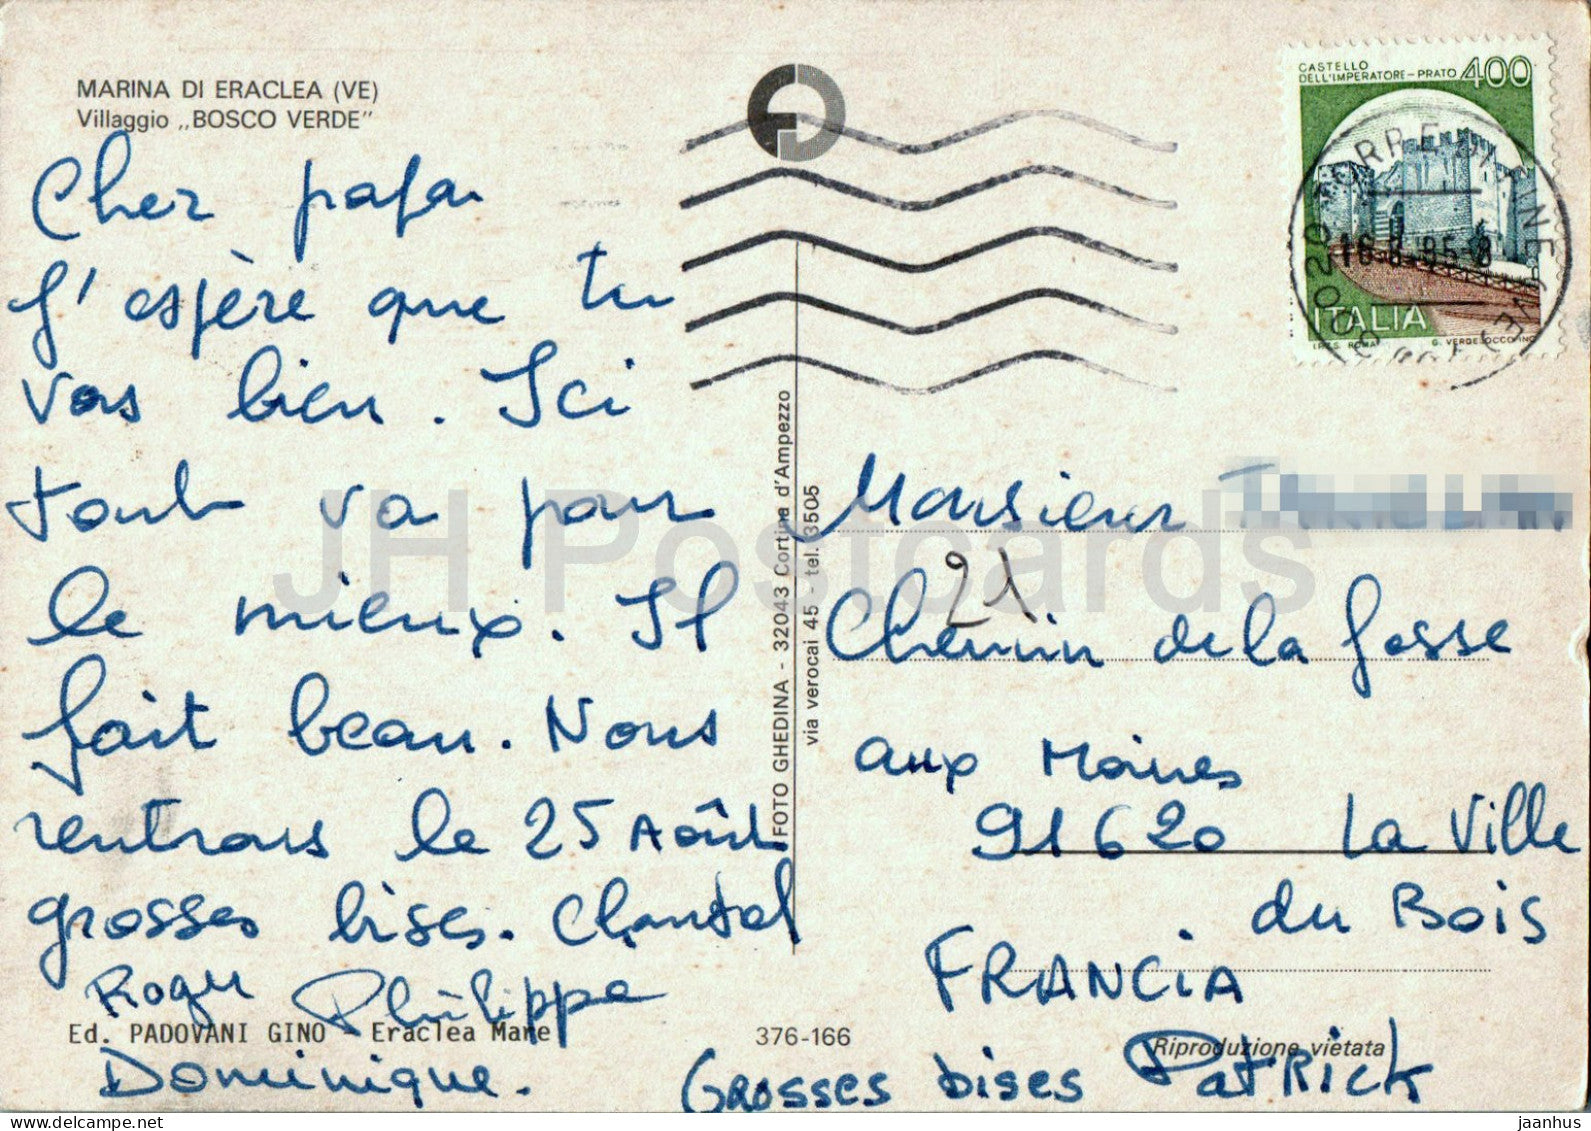 MARINA DI ERACLEA (VE)
Villaggio „BOSCO VERDE"
Cher papa
J'espère que tu
vas bien. Ici
tout va pour
le mieux. Il
fait beau. Nous
rentrons le 25 Août
grosses bises. Chantal
Roger Philippe
Dominique.
Grosses bises Patrick
Ed. PADOVANI GINO - Eraclea Mare
376-166
Riproduzione vietata
FOTO GHEDINA - 32043 Cortina d'Ampezzo
via verocai 45 - tel. 3505
CASTELLO
DELL'IMPERATORE-PRATO 400
ITALIA
I.P.Z.S. ROMA
G. VERDELOCCO INC.
30020 TORRE DI FINE (VE)
Monsieur
21
Chemin de la fosse
aux Moines
91620 La Ville
du Bois
FRANCIA
JH Postcards
delcampe.net
jaanhus